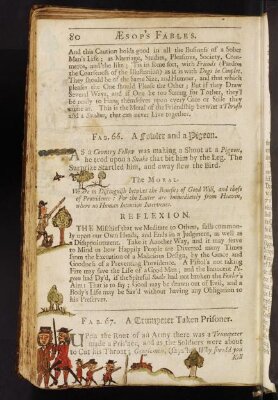 80 ÆSOP's FABLES.
And this Caution holds good in all the Business of a Sober
Man's Life; as Marriage, Studies, Pleasures, Society, Com-
merce, and the like; 'Tis in some sort, with Friends (Pardon
the Coarseness of the Illustration) as it is with Dogs in Couples.
They should be of the same Size, and Humour, and that which
pleases the One should Please the Other; But if they Draw
Several Ways, and if One be too Strong for T'other, they'l
be ready to Hang themselves upon every Gate or Stile they
come at. This is the Moral of the Friendship betwixt a Thrush
and a Swallow, that can never live together.
FAB. 66. A Fowler and a Pigeon.
AS a Country Fellow was making a Shoot at a Pigeon,
he trod upon a Snake that bit him by the Leg. The
Surprize startled him, and away flew the Bird.
The MORAL.
We are to Distinguish betwixt the Benefits of Good Will, and those
of Providence: For the Latter are immediately from Heaven,
where no Human Intention Intervenes.
REFLEXION.
THE Mischief that we Meditate to Others, falls common-
ly upon our Own Heads, and Ends in a Judgment, as well as
Disappointment. Take it Another Way, and it may serve
to Mind us how Happily People are Diverted many Times
from the Execution of a Malicious Design, by the Grace and
Goodness of a Preventing Providence. A Pistol's not taking
Fire may save the Life of a Good Man; and the Innocent Pi-
geon had Dy'd, if the Spiteful Snake had not broken the Fowler's
Aim: That is to say; Good may be drawn out of Evil, and a
Body's Life may be Sav'd without having any Obligation to
his Preserver.
FAB. 67. A Trumpeter Taken Prisoner.
UPon the Rout of an Army there was a Trumpeter
made a Prisoner, and as the Soldiers were about
to Cut his Throat; Gentlemen, (says he) Why should you
Kill